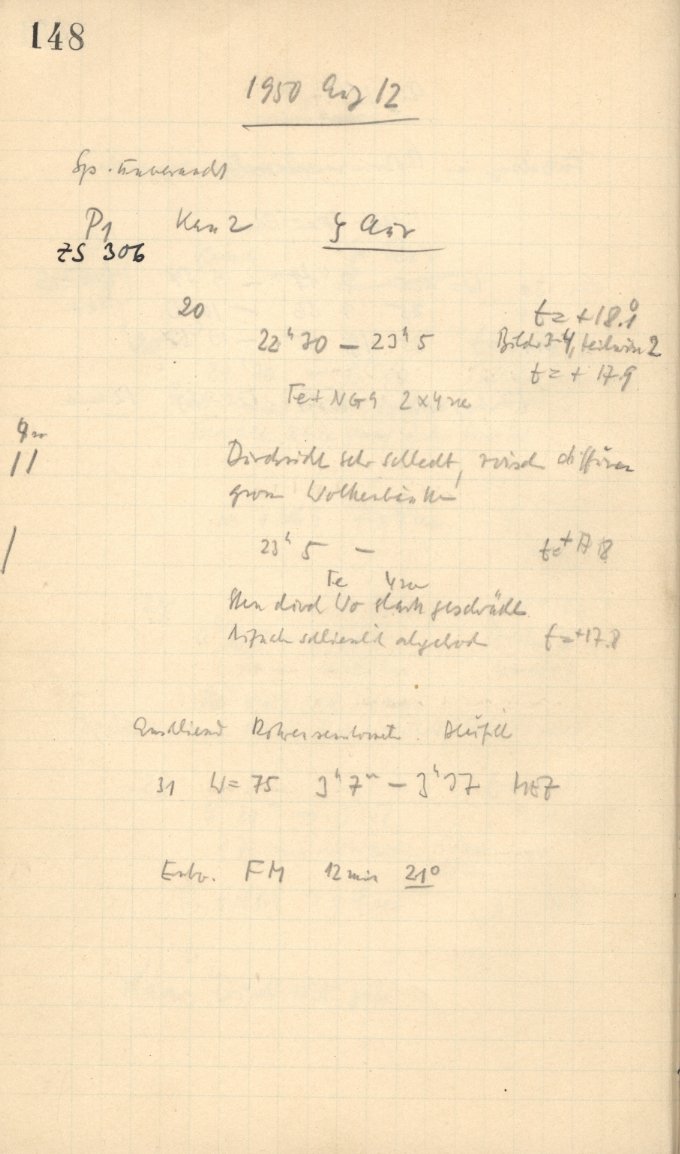 148
1950 Aug 12
Sp.
P1 Kam 2 ζ Aur
ZS 306
20 t= +18.1°
22h30 – 23h5 Bild 3-4, teilweise 2
t= + 17.9
Fe+ NG9 2x4m
4m
11 Durchsicht sehr schlecht, zwischen diffusen
grossen Wolkenbänken
1 23h 5 – t= +17.8
Fe 4m
Stern durch Wo stark geschwächt
Aufnahme schliesslich abgebrochen t=+17.8
Anschliessend
31 W= 75 3h7m – 3h37 MEZ
Entw. FM 12 min 21°